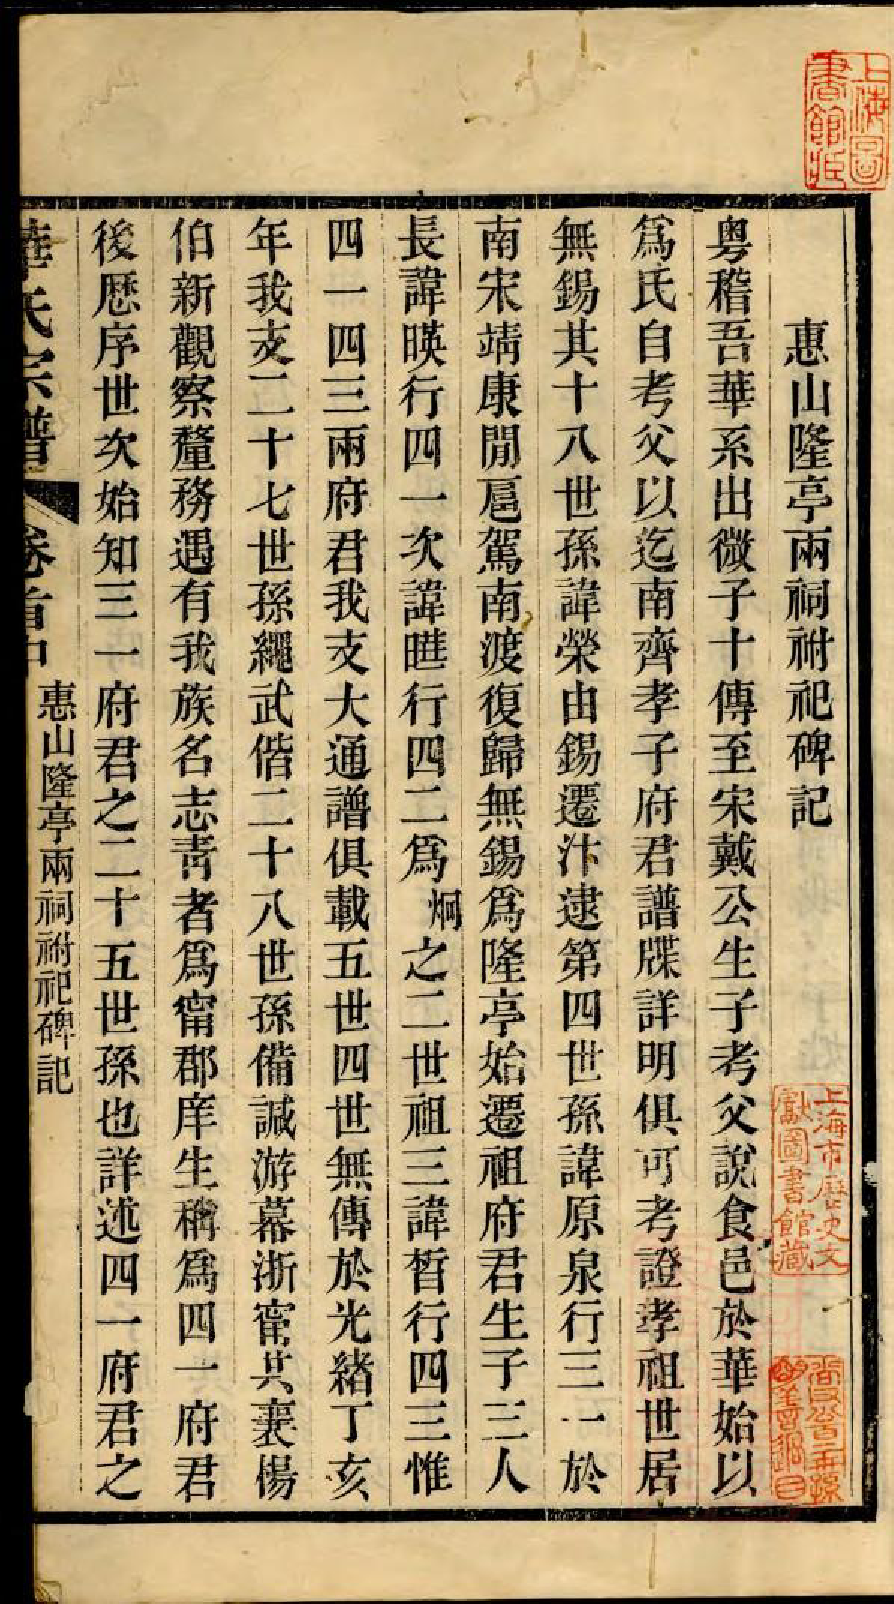 惠山隆亭兩祠祔祀碑記
粤稽吾華系出微子十傳至宋戴公生子考父說食邑於華始以
爲氏自考父以迄南齊孝子府君譜牒詳明俱可考證孝祖世居
無錫其十八世孫諱榮由錫遷汴逮第四世孫諱原泉行三一於
南宋靖康閒扈駕南渡復歸無錫爲隆亭始遷祖府君生子三人
長諱暎行四一次諱行四二爲炯之二世祖三諱晳行四三惟
四一四三兩府君我支大通譜俱載五世四世無傳於光緒丁亥
年我支二十七世孫繩武偕二十八世孫備諴游幕浙甯其襄楊
伯新觀察釐務遇有我族名志靑者爲甯郡庠生稱爲四一府君
後歷序世次始知三一府君之二十五世孫也詳述四一府君之
華氏宗譜 卷首中 惠山隆亭兩祠祔祀碑記
上海圖書館藏
上海市歷史文獻圖書館藏